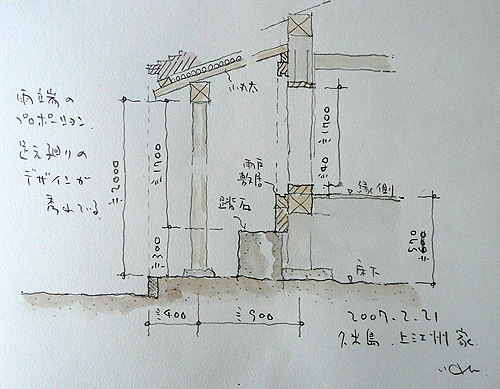 雨端の
プロポーション.
足元廻りの
デザインが
秀れている.
小丸太
雨戸
敷居
踏石
縁側
床下
≒2000
≒1700
≒300
≒1700
≒40
≒400
≒900
2007.2.21
久米島.上江洲家.